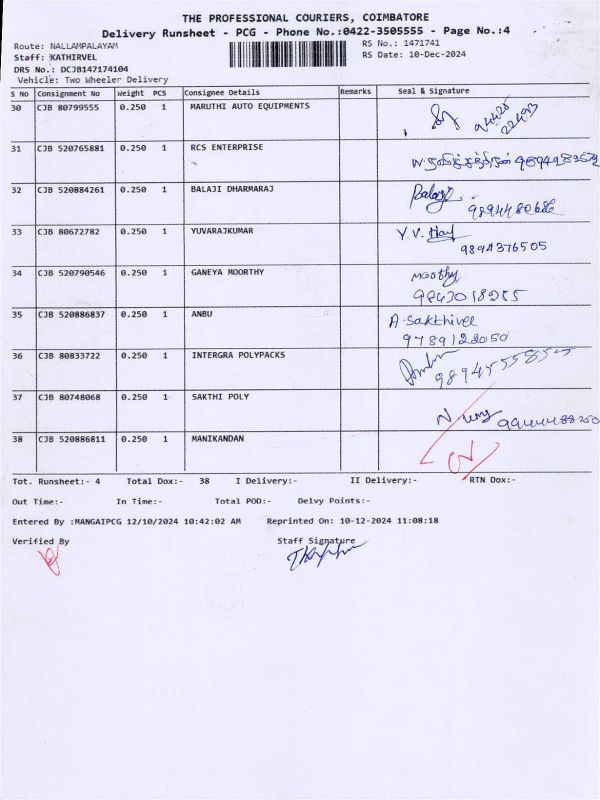 THE PROFESSIONAL COURIERS, COIMBATORE
Delivery Runsheet - PCG - Phone No.:0422-3505555 - Page No.:4
Route: NALLAMPALAYAM
RS No.: 1471741
Staff: KATHIRVEL
RS Date: 10-Dec-2024
DRS No.: DCJB147174104
Vehicle: Two Wheeler Delivery
S No Consignment No Weight PCS Consignee Details Remarks Seal & Signature
30 CJB 80799555 0.250 1 MARUTHI AUTO EQUIPMENTS
31 CJB 520765881 0.250 1 RCS ENTERPRISE
32 CJB 520884261 0.250 1 BALAJI DHARMARAJ Balaji
9894480686
33 CJB 80672782 0.250 1 YUVARAJKUMAR Y.V.
9894376505
34 CJB 520790546 0.250 1 GANEYA MOORTHY moorthy
35 CJB 520886837 0.250 1 ANBU A-Sakthivel
9789122050
36 CJB 80833722 0.250 1 INTERGRA POLYPACKS
37 CJB 80748068 0.250 1 SAKTHI POLY
38 CJB 520886811 0.250 1 MANIKANDAN
Tot. Runsheet:- 4 Total Dox:- 38 I Delivery:- II Delivery:- RTN Dox:-
Out Time:- In Time:- Total POD:- Delvy Points:-
Entered By :MANGAIPCG 12/10/2024 10:42:02 AM Reprinted On: 10-12-2024 11:08:18
Verified By Staff Signature